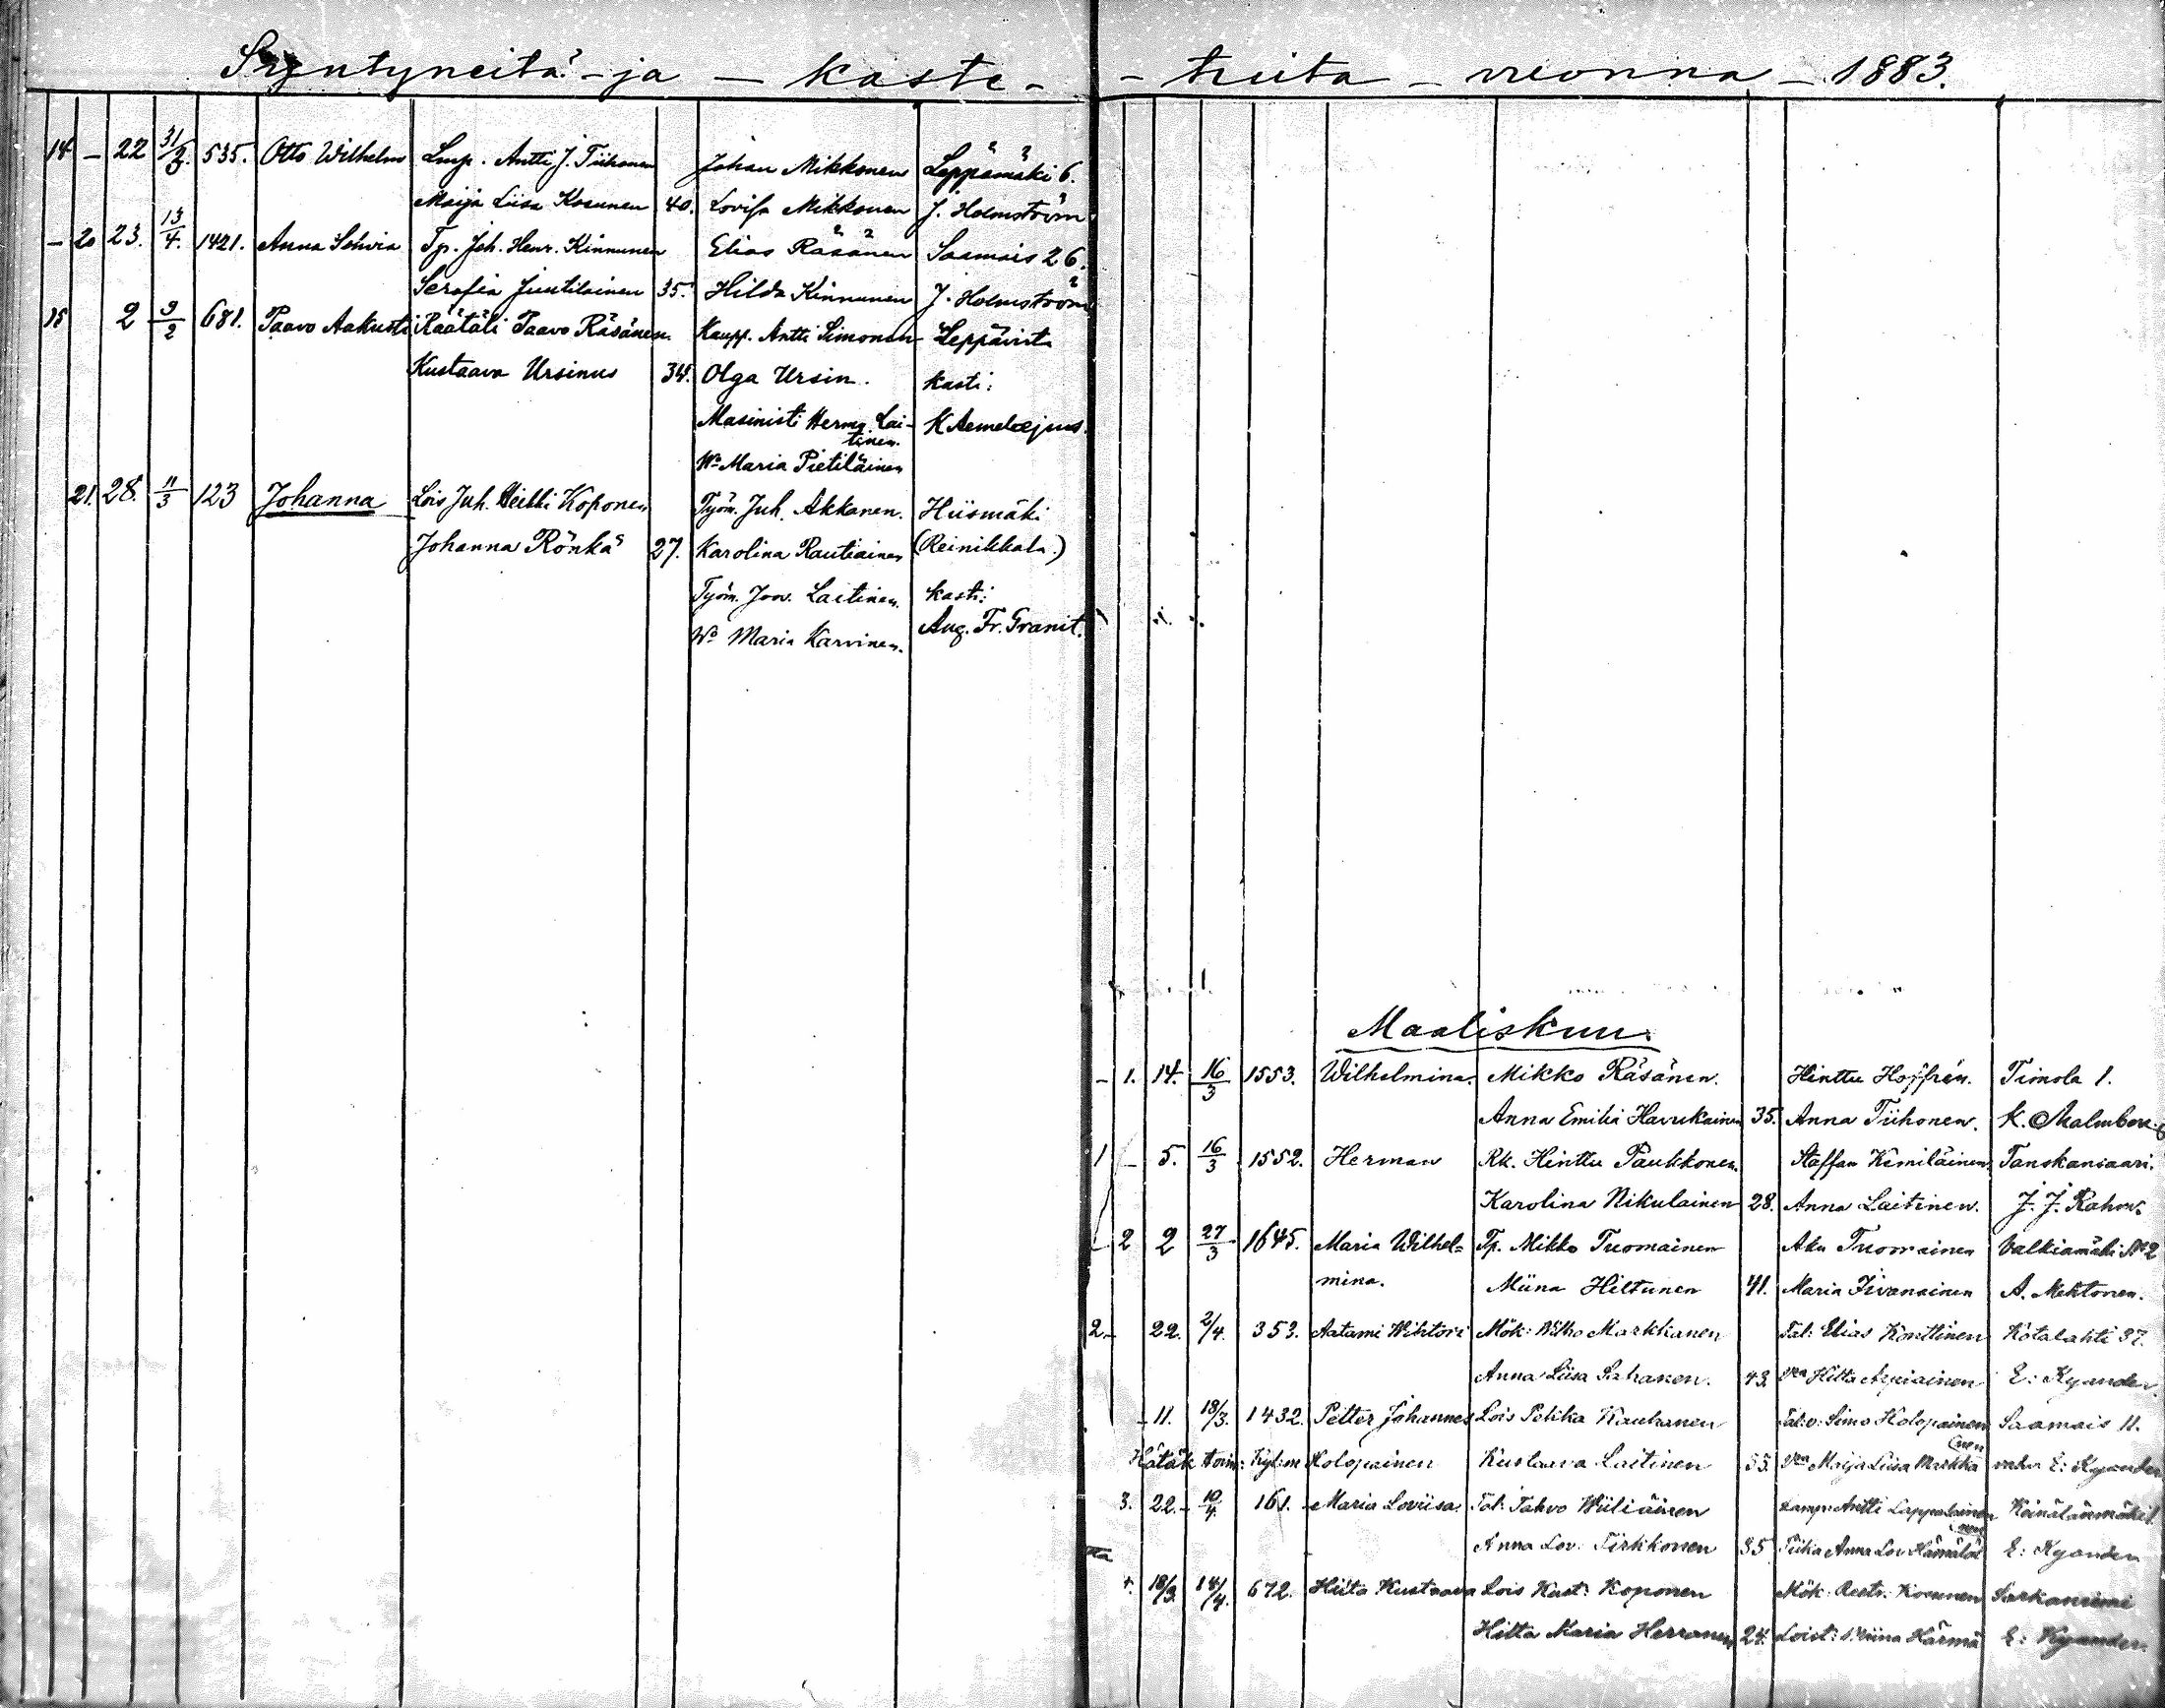 Syntyneitä - ja - kaste- - tuita - vuonna - 1883.
14 - 22 31/3. 535. Otto Wilhelm Lmp. Antti J. Tiihonen Johan Mikkonen Leppämäki 6.
Maija Liisa Kosunen 40. Lovisa Mikkonen J. Holmström
- 20 23. 13/4. 1421. Anna Sohvia Tp. Joh. Henr. Kinnunen Elias Räsänen Saamais 26.
Serafia Juutilainen 35. Hilda Kinnunen J. Holmström
15 2 9/2 681. Paavo Aukusti Räätäli Paavo Räsänen Kaupp. Antti Simonen Leppävirta
Kustaava Ursinus 34. Olga Ursin. kasti:
Masinisti Herm. Lai- K Aemelæjus.
tinen.
Wo Maria Pietiläinen
21. 28. 11/3 123 Johanna Lois Juh. Heikki Koponen Työm. Juh. Akkanen. Hiismäki
Johanna Rönkä 27. Karolina Rautiainen (Reinikkala.)
Työm. Joov. Laitinen. kasti:
Wo Maria Karvinen. Aug. Fr. Granit.
Maaliskuu.
- 1. 14. 16/3 1553. Wilhelmina. Mikko Räsänen. Hinttu Hoffrén. Timola 1.
Anna Emilia Havukainen 35. Anna Tiihonen. K. Malmberg
1 - 5. 16/3 1552. Herman Rk. Hinttu Paukkonen. Staffan Kemiläinen Tanskansaari.
Karolina Nikulainen 28. Anna Laitinen. J. J. Rahm.
- 2 2 27/3 1645. Maria Wilhel= Tp. Mikko Tuomainen Aku Tuomainen Valkiamäki No 2
mina. Miina Hiltunen 41. Maria Iivanainen A. Mektonen.
2. - 22. 2/4. 353. Aatami Wihtori Mök: Wilho Markkanen Tal: Elias Konttinen Kotalahti 37.
Anna Liisa 43. Hitta E: Kyander.
- 11. 18/3. 1432. Petter Johannes Lois Pekka Kauhanen Tal:v: Simo Holopainen Saamais 11.
Hätäk toim: Holopainen Kustaava Laitinen 35. Maija Liisa Markka E: Kyander
nen
3. 22. - 10/4. 161. Maria Loviisa. Tal: Tahvo Wiiliäinen Lamp: Antti Lappalainen
Anna Lov: Tirkkonen 35 Piika Anna Lov Hämäläi E: Kyander
nen
+. 18/3. 14/4. 672. Hilta Kustaava Lois Kust: Koponen Mök: Kosunen Sarkaniemi
Hilta Maria Herranen 24. Loist: Miina Härmä E: Kyander.